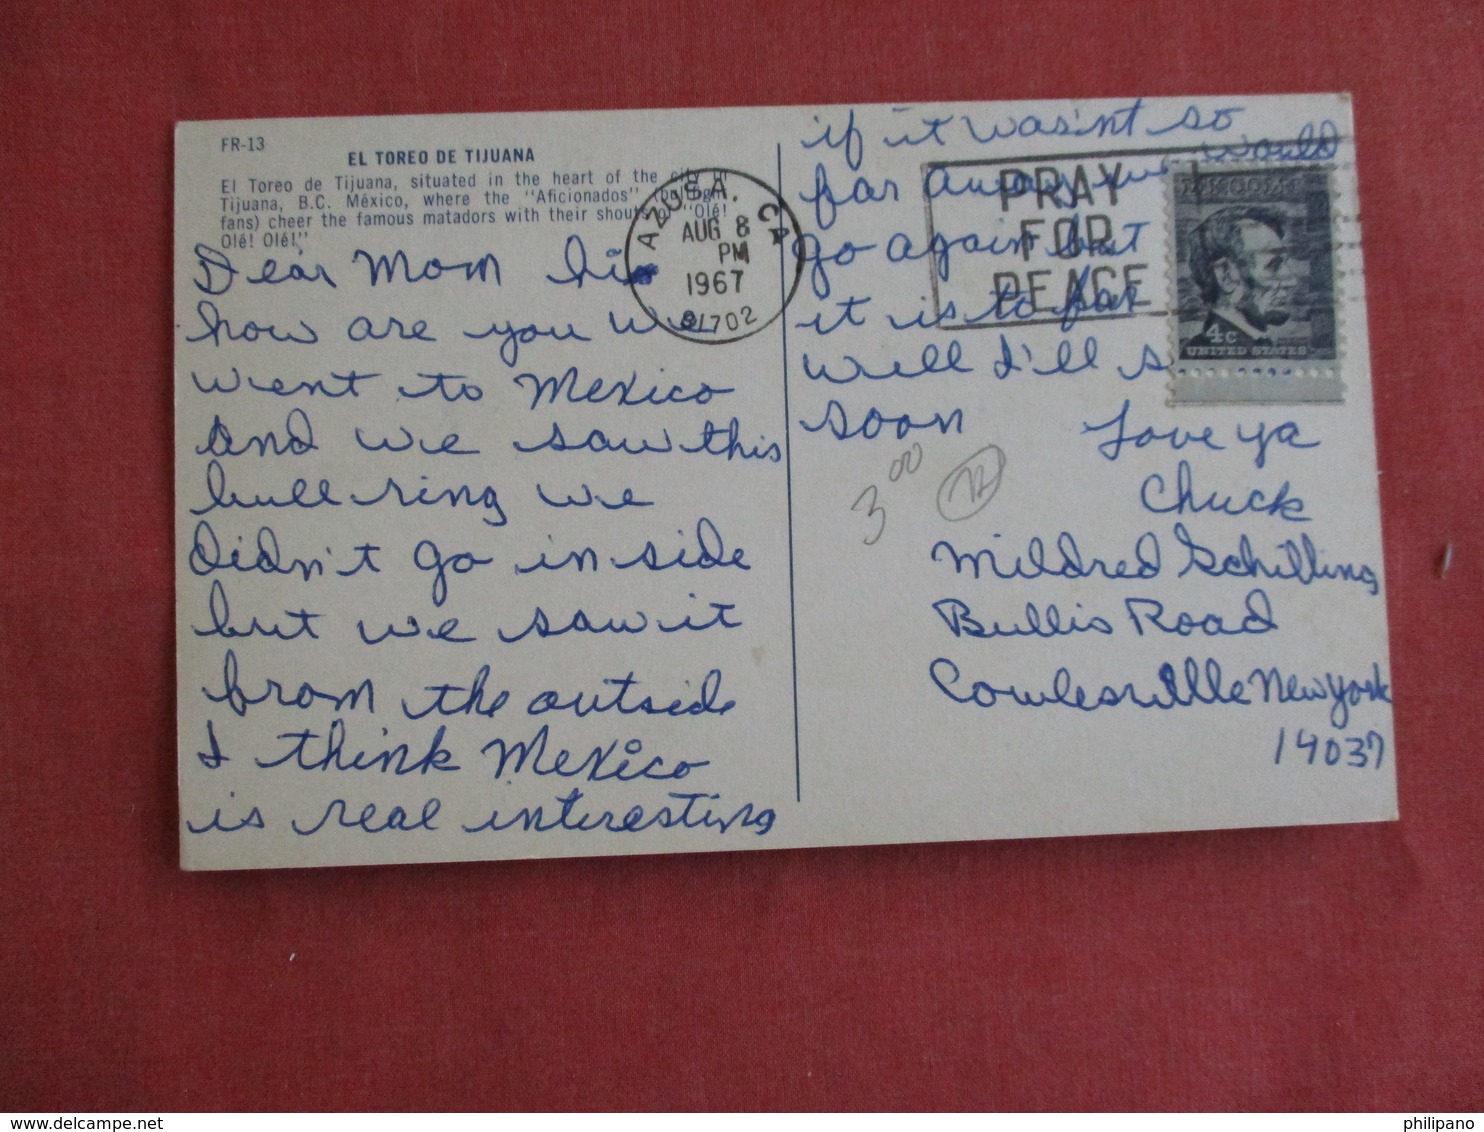 FR-13
EL TOREO DE TIJUANA
El Toreo de Tijuana, situated in the heart of the city in
Tijuana, B.C. México, where the "Aficionados" (bullfight
fans) cheer the famous matadors with their shouts of "Olé!
Olé! Olé!"
Dear Mom hi
how are you we
went to Mexico
and we saw this
bull ring we
didn't go in side
but we saw it
from the outside
I think Mexico
is real interesting
if it wasn't so
far away we would
go again but
it is to far
well I'll s
soon
Love ya
Chuck
3.00
Mildred Schilling
Bullis Road
Cowlesville New York
14037
AZUSA, CA
AUG 8
PM
1967
91702
PRAY
FOR
PEACE
LINCOLN
4c
UNITED STATES
www.delcampe.net
philipano